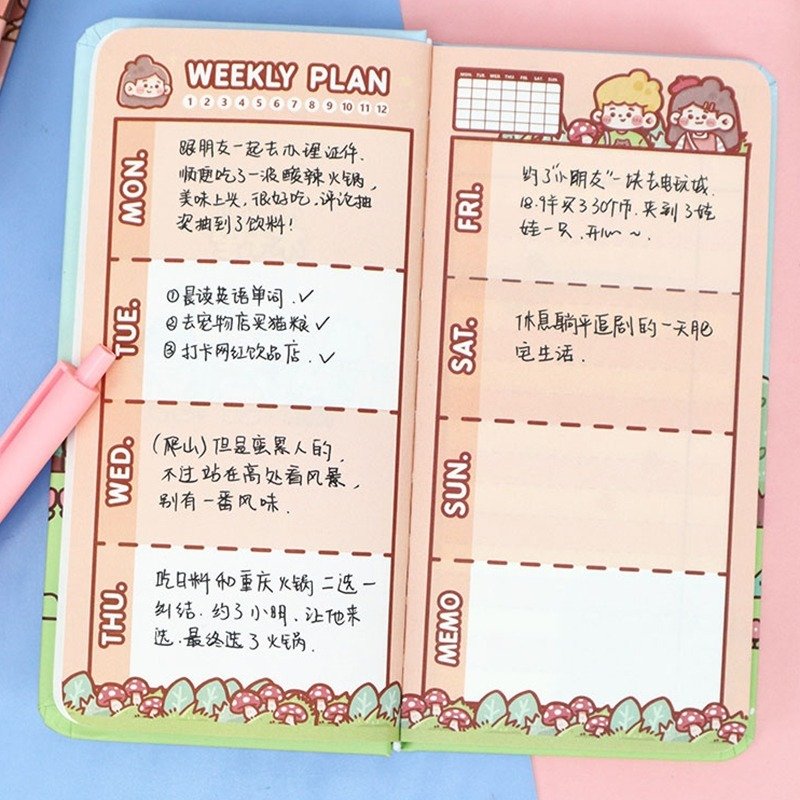 WEEKLY PLAN
1 2 3 4 5 6 7 8 9 10 11 12
MON.
跟朋友一起去办理证件.
顺便吃了一波酸辣火锅,
美味上头,很好吃,评论抽
奖抽到了饮料!
TUE.
①晨读英语单词.✓
②去宠物店买猫粮✓
③打卡网红饮品店.✓
WED.
(爬山)但是蛮累人的,
不过站在高处看风景,
别有一番风味.
THU.
吃日料和重庆火锅二选一
纠结.约了小明,让他来
选.最终选了火锅.
MON. TUE. WED. THU. FRI. SAT. SUN.
FRI.
约了"小朋友"一块去电玩城.
18.9件买了330个币,夹到了娃
娃一只.开心~~.
SAT.
休息躺平追剧的一天肥
宅生活.
SUN.
MEMO